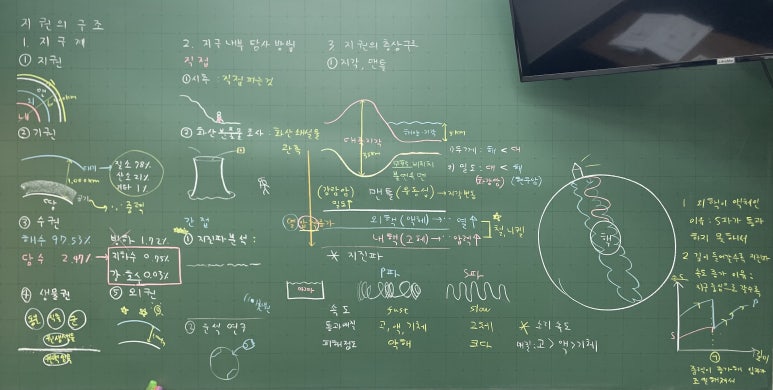 지권의 구조
1. 지구계
① 지권
② 기권
1,000km
땅
질소 78%
산소 21%
기타 1%
③ 수권
해수 97.53%
담수 2.47%
빙하 1.72%
지하수 0.75%
강, 호수 0.03%
④ 생물권
⑤ 외권
2. 지구 내부 탐사 방법
직접
① 시추 : 직접 파는 것
② 화산 분출물 조사 : 화산 쇄설물
관측
간접
① 지진파 분석 :
② 운석 연구
3. 지권의 층상구조
① 지각, 맨틀
대륙지각
35km
해양지각
5km
두께 : 해 < 대
밀도 : 대 < 해
(화강암) (현무암)
모호로비치치
불연속면
(감람암)
밀도↑
맨틀 (유동성) → 지각변동
외핵 (액체) → 열↑
내핵 (고체) → 압력↑
철, 니켈
* 지진파
P파 S파
속도 fast slow
통과매질 고, 액, 기체 고체
피해정도 약해 크다
* 소리 속도
매질 : 고 > 액 > 기체
핵
1. 외핵이 액체인
이유 : S파가 통과
하지 못해서
속도 증가 이유 :
P
S
깊이